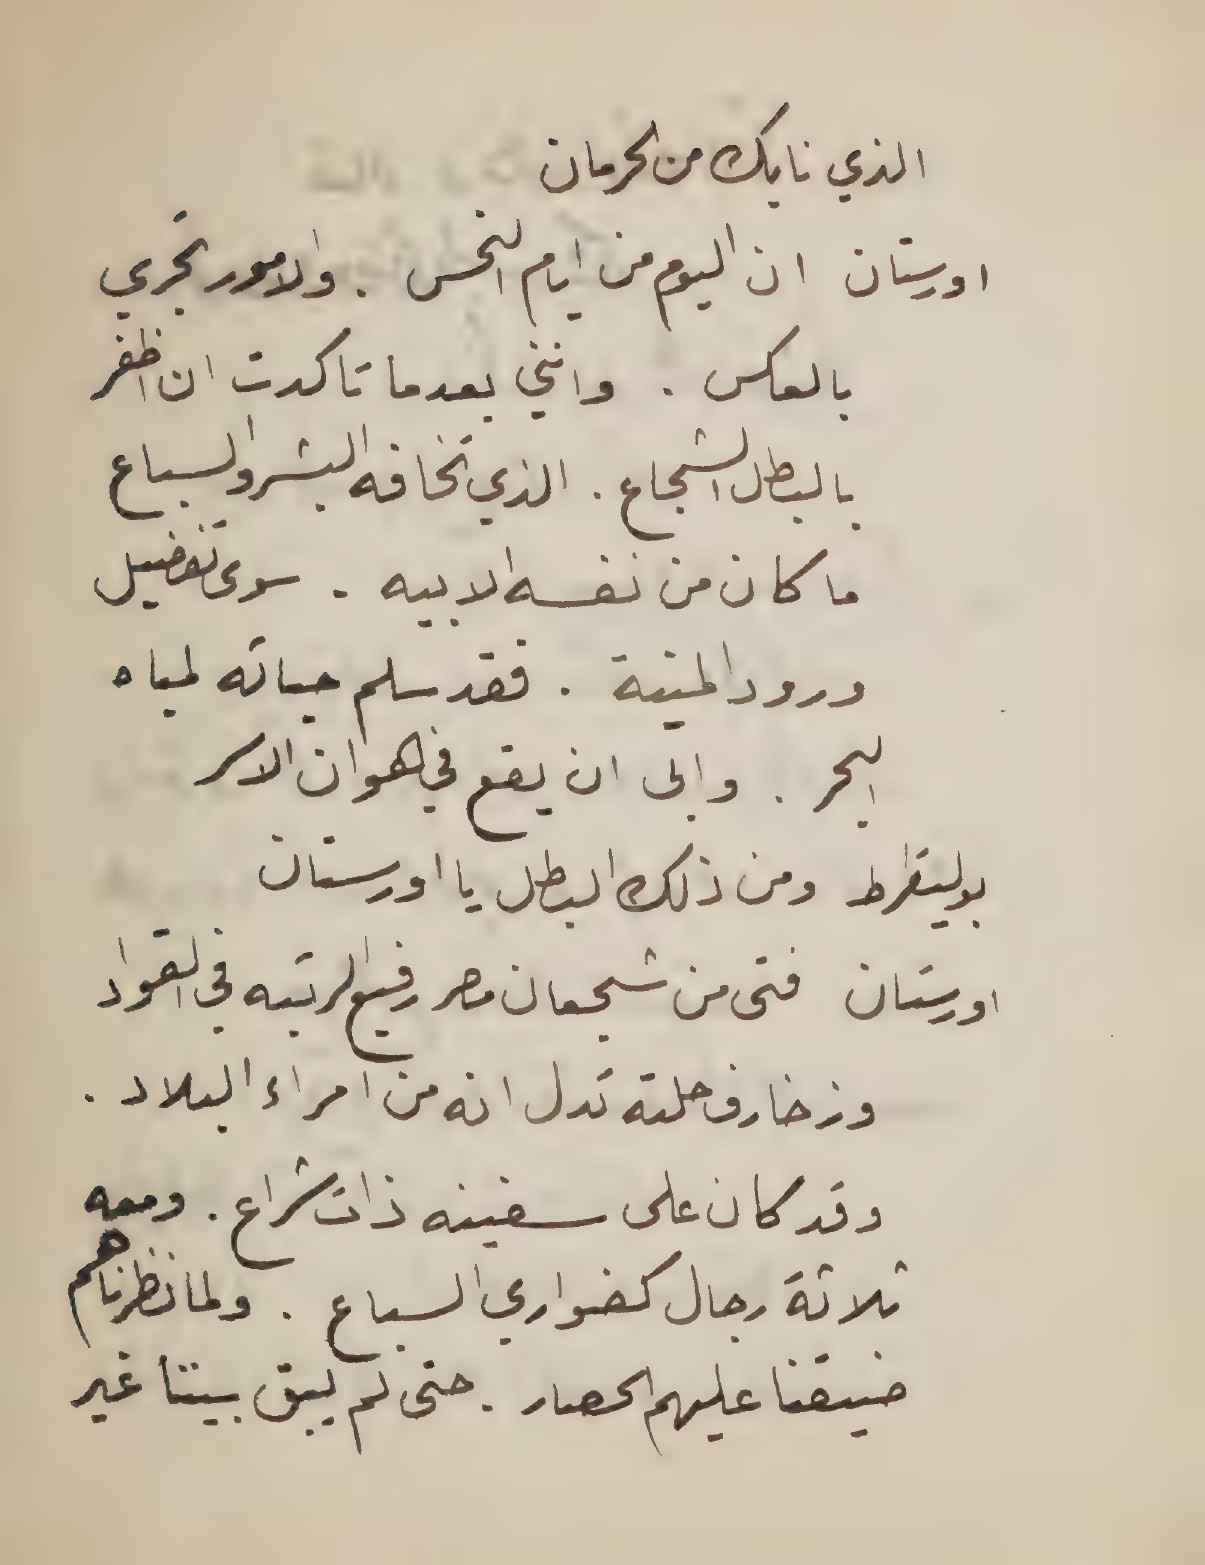 الذي نابك من الحرمان
اورستان ان اليوم من ايام النحس . والامور تجري
بالعكس . وانني بعدما تاكدت ان اظفر
بالبطل الشجاع . الذي تخافه البشر والسباع
ما كان من نفسه الابيه . سوى تفضيل
ورود المنية . فقد سلم حياته لمياه
البحر . وابى ان يقع في هوان الاسر
بوليتقراط ومن ذلك البطل يا اورستان
اورستان فتى من شجعان مصر رفيع الرتبه في القواد
وزخارف حلته تدل انه من امراء البلاد .
وقد كان على سفينه ذات شراع . ومعه
ثلاثة رجال كضواري السباع . ولما نظرناهم
ضيقنا عليهم الحصار . حتى لم يبق بيننا غير